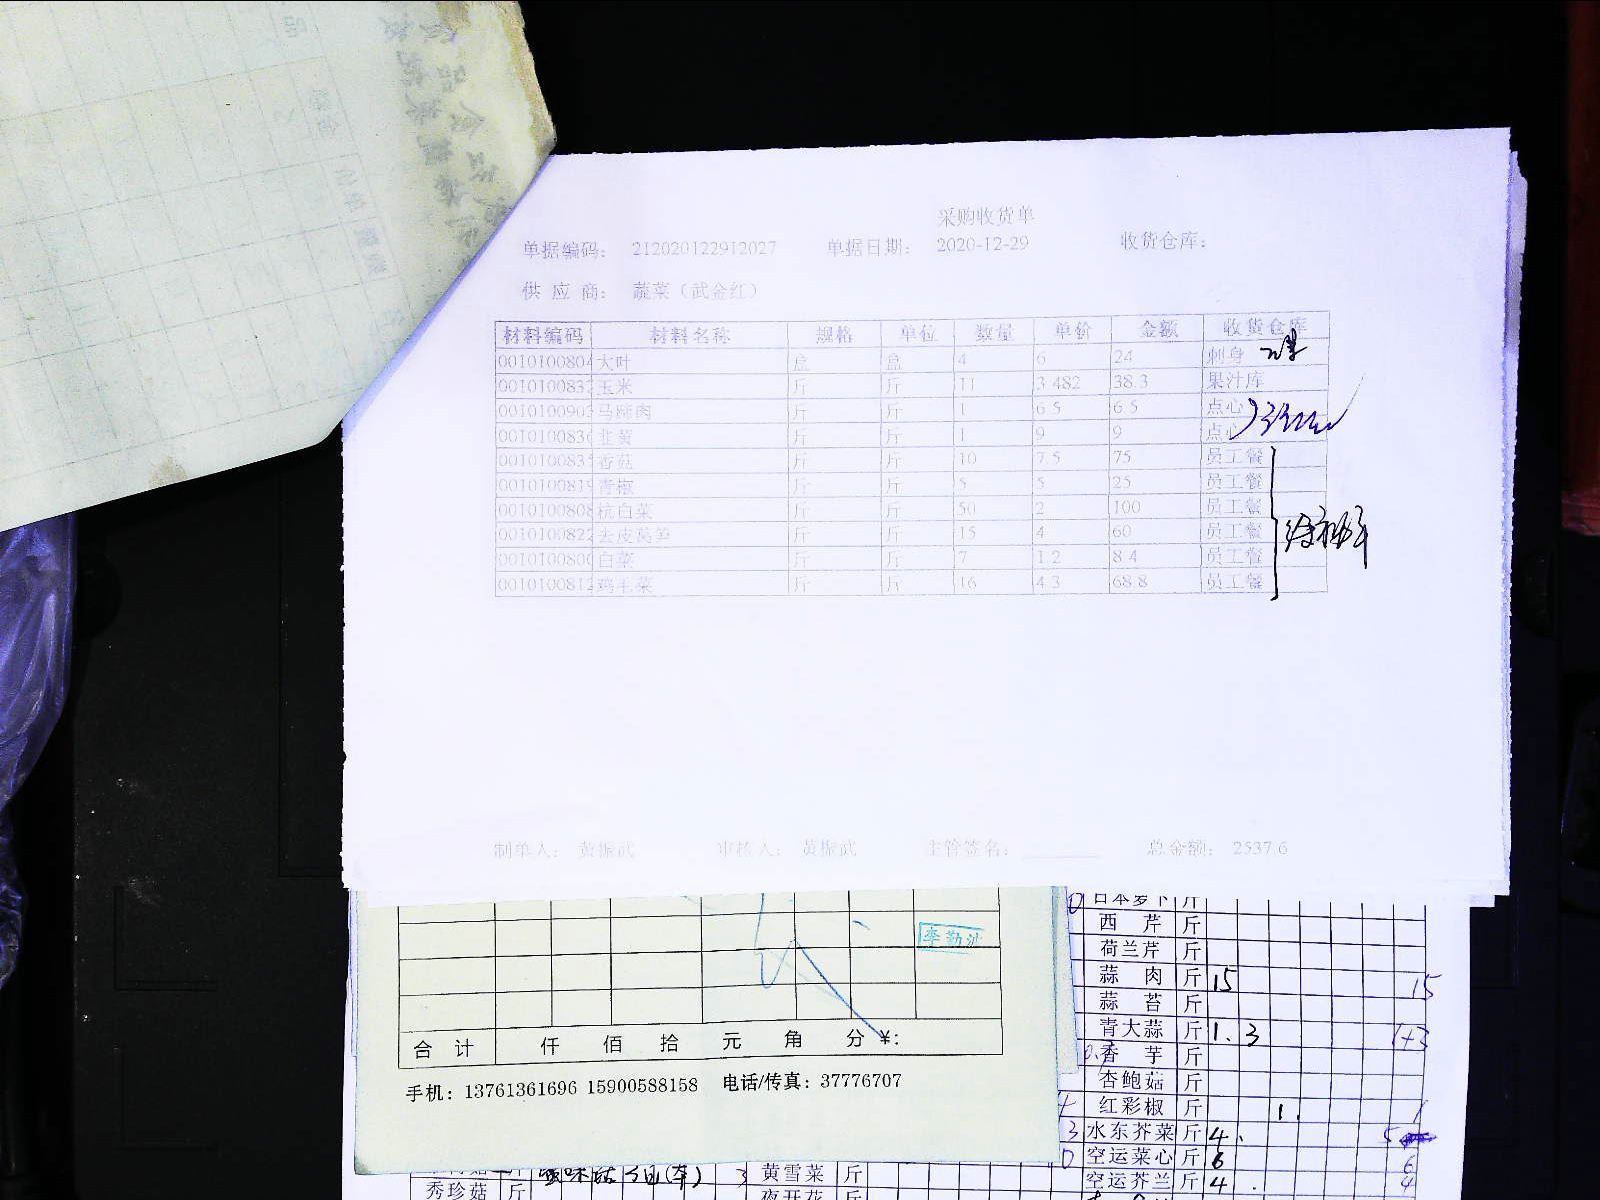 采购收货单
单据编码： 212020122912027 单据日期： 2020-12-29 收货仓库：
供 应 商： 蔬菜（武金红）
材料编码 材料名称 规格 单位 数量 单价 金额 收货仓库
0010100804 大叶 盒 盒 4 6 24 刺身
001010083 玉米 斤 斤 11 3.482 38.3 果汁库
001010090 马蹄肉 斤 斤 1 6.5 6.5 点心
001010083 韭黄 斤 斤 1 9 9 点心
001010083 香菇 斤 斤 10 7.5 75 员工餐
001010081 青椒 斤 斤 5 5 25 员工餐
001010080 杭白菜 斤 斤 50 2 100 员工餐
001010082 去皮莴笋 斤 斤 15 4 60 员工餐
001010080 白菜 斤 斤 7 1.2 8.4 员工餐
001010081 鸡毛菜 斤 斤 16 4.3 68.8 员工餐
制单人： 黄振武 审核人： 黄振武 主管签名： 总金额： 2537.6
合 计 仟 佰 拾 元 角 分 ¥:
手机：13761361696 15900588158 电话/传真：37776707
日本萝卜 斤
西 芹 斤
荷兰芹 斤
蒜 肉 斤 15 15
蒜 苔 斤
青大蒜 斤 1.3 1+3
香 芋 斤
杏鲍菇 斤
红彩椒 斤 1. 1
水东芥菜 斤 4. 5
空运菜心 斤 6 6
空运芥兰 斤 4 4
黄雪菜 斤
秀珍菇 斤
夜开花 斤